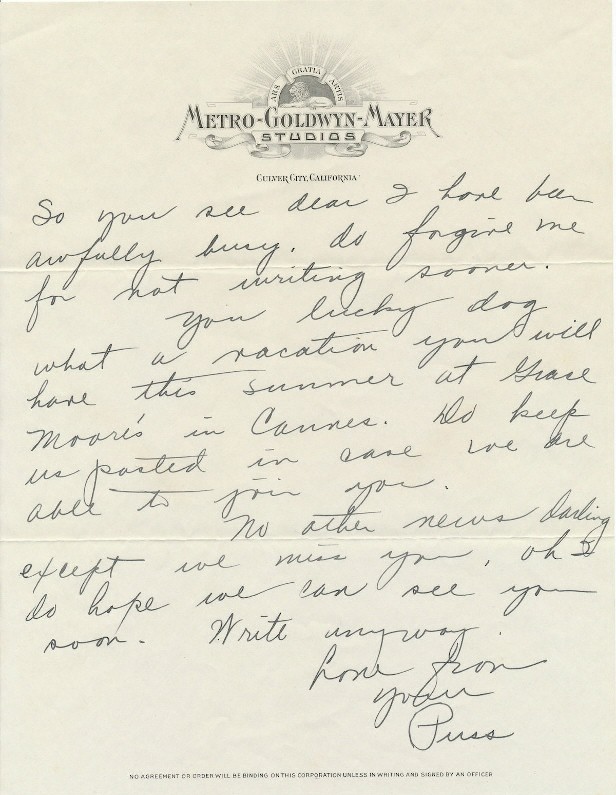 ARS GRATIA ARTIS
METRO-GOLDWYN-MAYER
STUDIOS
CULVER CITY, CALIFORNIA
So you see dear I have been
awfully busy. do forgive me
for not writing sooner.
You lucky dog
what a vacation you will
have this summer at Grace
Moore's in Cannes. Do keep
us posted in case we are
able to join you.
No other news darling
except we miss you, oh I
do hope we can see you
soon. Write anyway.
Love from
your
Puss
NO AGREEMENT OR ORDER WILL BE BINDING ON THIS CORPORATION UNLESS IN WRITING AND SIGNED BY AN OFFICER